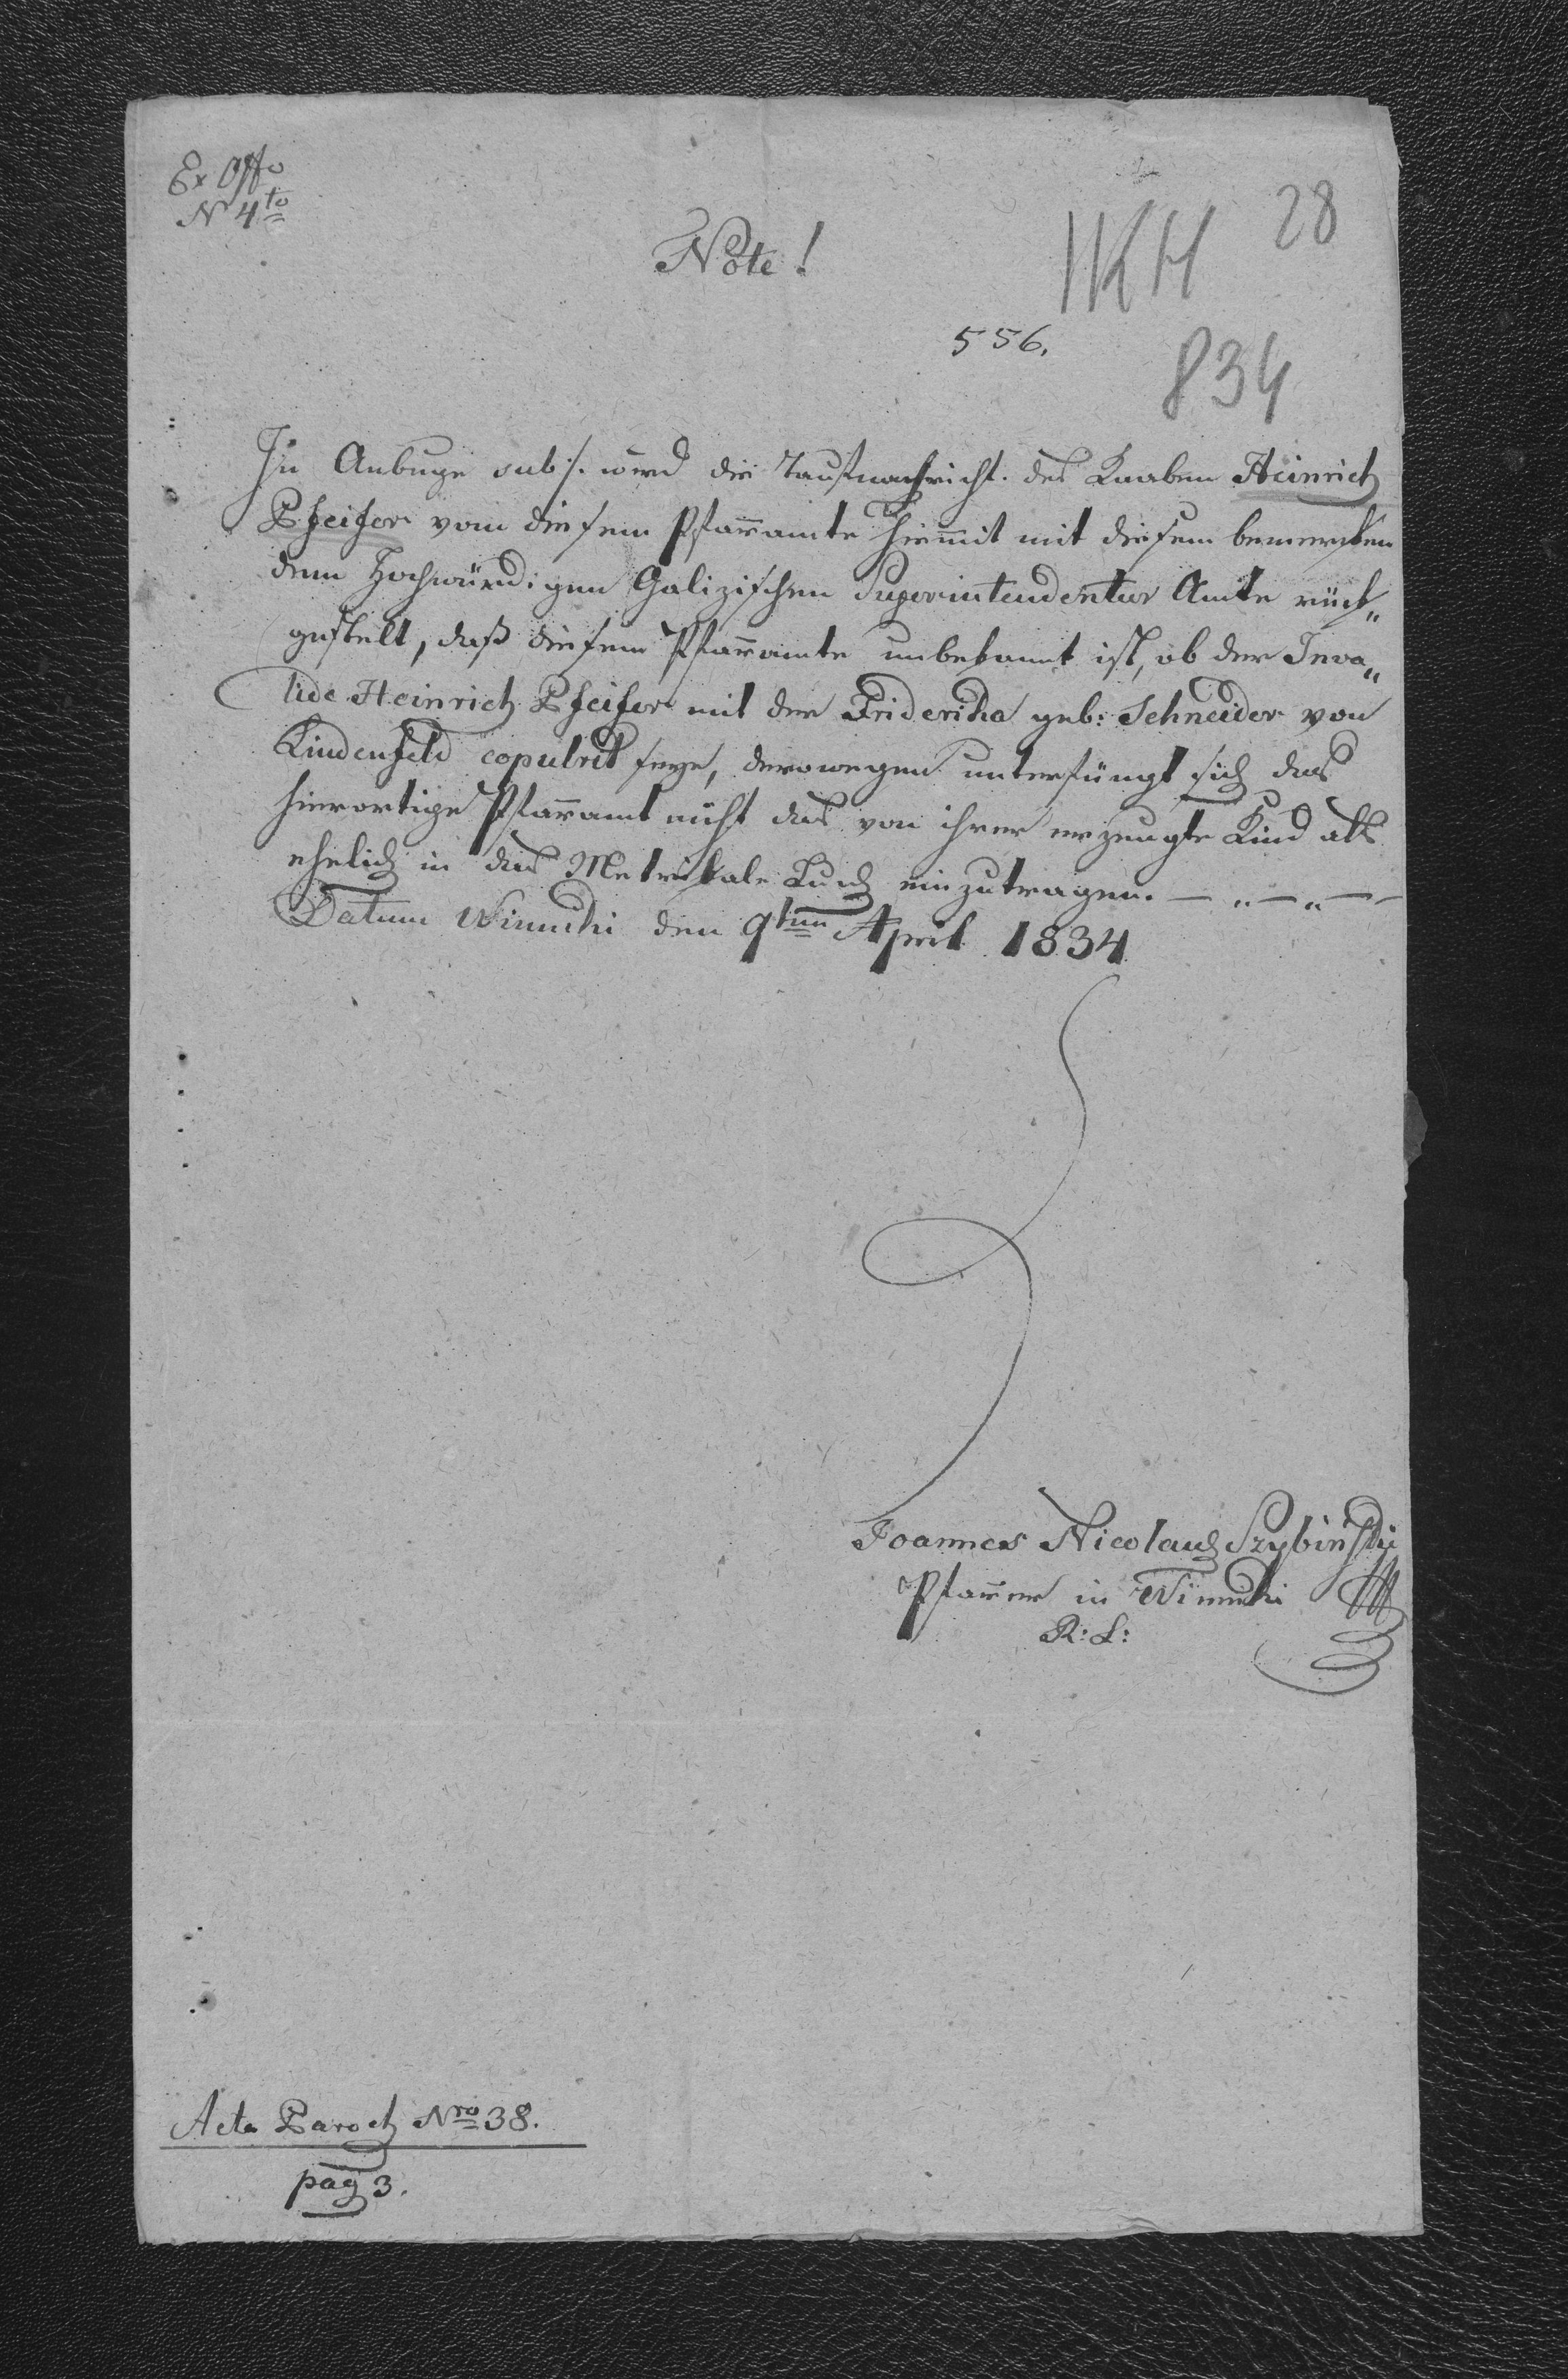 Ex Offo
N 4to
28
Note!
IKH
556.
834
In Anbuge sub ./. wird die Taufnachricht des Knaben Heinrich
Pfeifer von diesem Pfarramte hiemmit mit diesem bemerken
dem Hochwürdigen Galizischen Superintendentur Amte rück„
gestelt, daß diesem Pfarramte unbekannt ist, ob der Inva„
lide Heinrich Pfeifer mit der Friderika geb: Schneider von
Lindenfeld copulrt seye, derowegen unterfängt sich das
hierortige Pfarramt nicht das von ihrer erzeugte Kind als
ehelich in das Metrikale Buch einzutragen. — „ — „ — —
Datum Winniki den 9ten April 1834
Joannes Nicolaus Szybinsky
Pfarrer in Winniki
R: L:
Acta Paroch Nro 38.
pag 3.